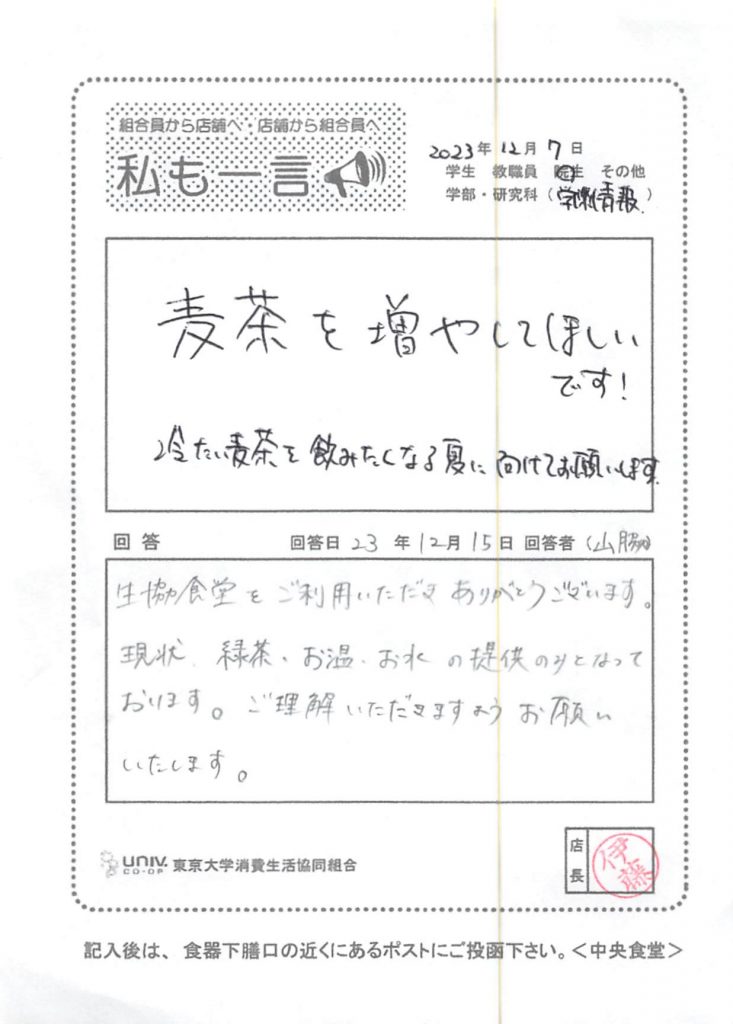 組合員から店舗へ・店舗から組合員へ
私も一言
2023年12月7日
学生 教職員 院生 その他
学部・研究科（学際情報）
麦茶を増やしてほしい
です！
冷たい麦茶を飲みたくなる夏に向けてお願いします。
回答 回答日23年12月15日 回答者（山脇）
生協食堂をご利用いただきありがとうございます。
現状、緑茶・お温・お水の提供のみとなって
おります。ご理解いただきますようお願い
いたします。
UNIV. CO-OP 東京大学消費生活協同組合
店長
伊藤
記入後は、食器下膳口の近くにあるポストにご投函下さい。＜中央食堂＞